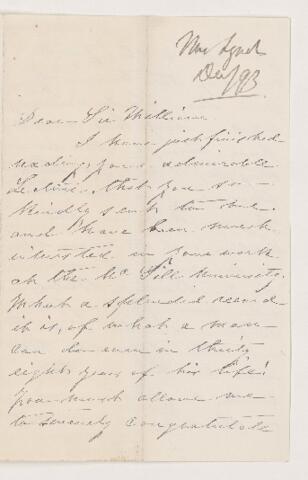 Mrs Lynch
Dec/93
Dear Sir William
I have just finished
reading your admirable
Lecture, that you so
kindly sent to me
and have been much
interested in your work
at the Mc Gill University.
What a splendid record
it is, of what a man
can do even in thirty
eight years of his life!
you must allow me
to sincerely congratulate